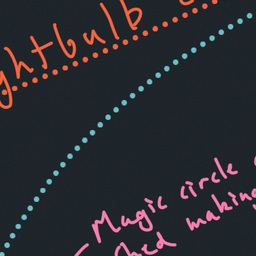 ghtbulb
Magic circle
hed making